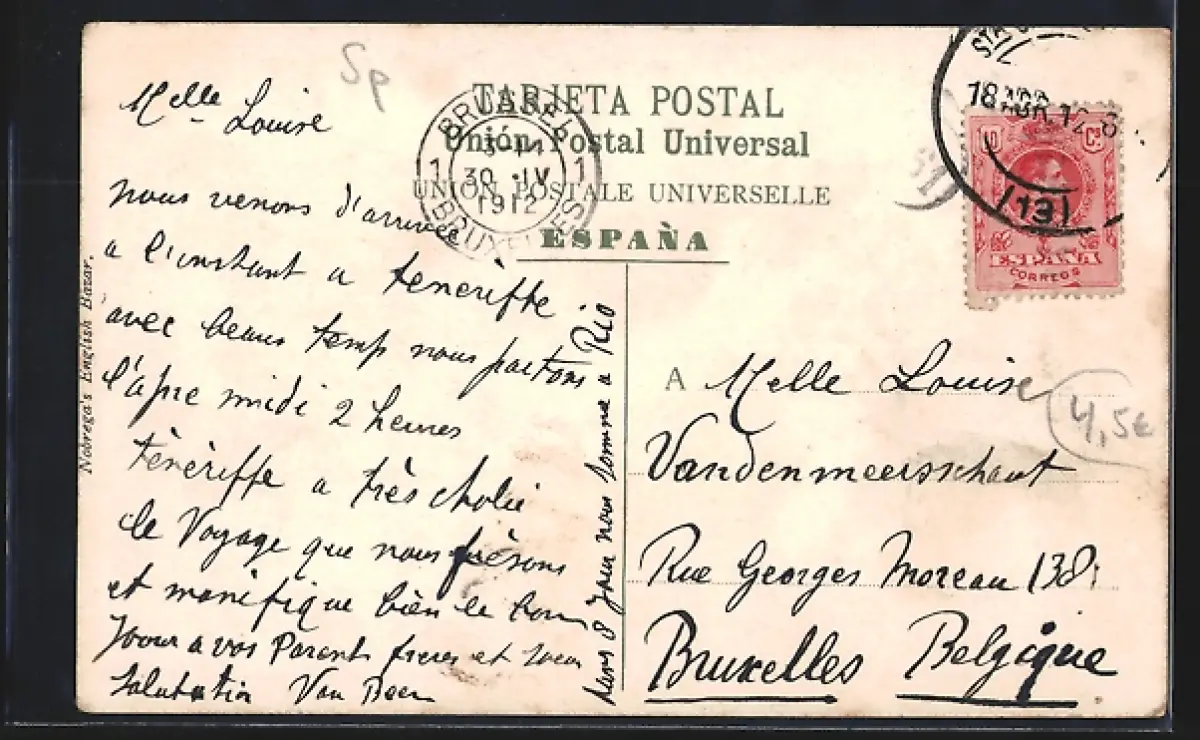 Sp
TARJETA POSTAL
Unión Postal Universal
UNION POSTALE UNIVERSELLE
ESPAÑA
BRUSSEL
1 1
30 IV
1912
BRUXELLES
18 ABR.12
(13)
10 Cs
ESPAÑA
CORREOS
Nobrega's English Bazar.
Melle Louise
nous venons d'arrivée
a l'instant a teneriffe
avec beaus temp nous partons
l'apre midi 2 heures
tènèriffe a très cholie
le Voyage que nous
et manifique bien le bon
Joour a vos Parent freres et soeur
Salutation Van Beer
8 Jour nous somme a Rio
A Melle Louise
Vandenmeersschaut
Rue Georges Moreau 138
Bruxelles Belgique
4,5€